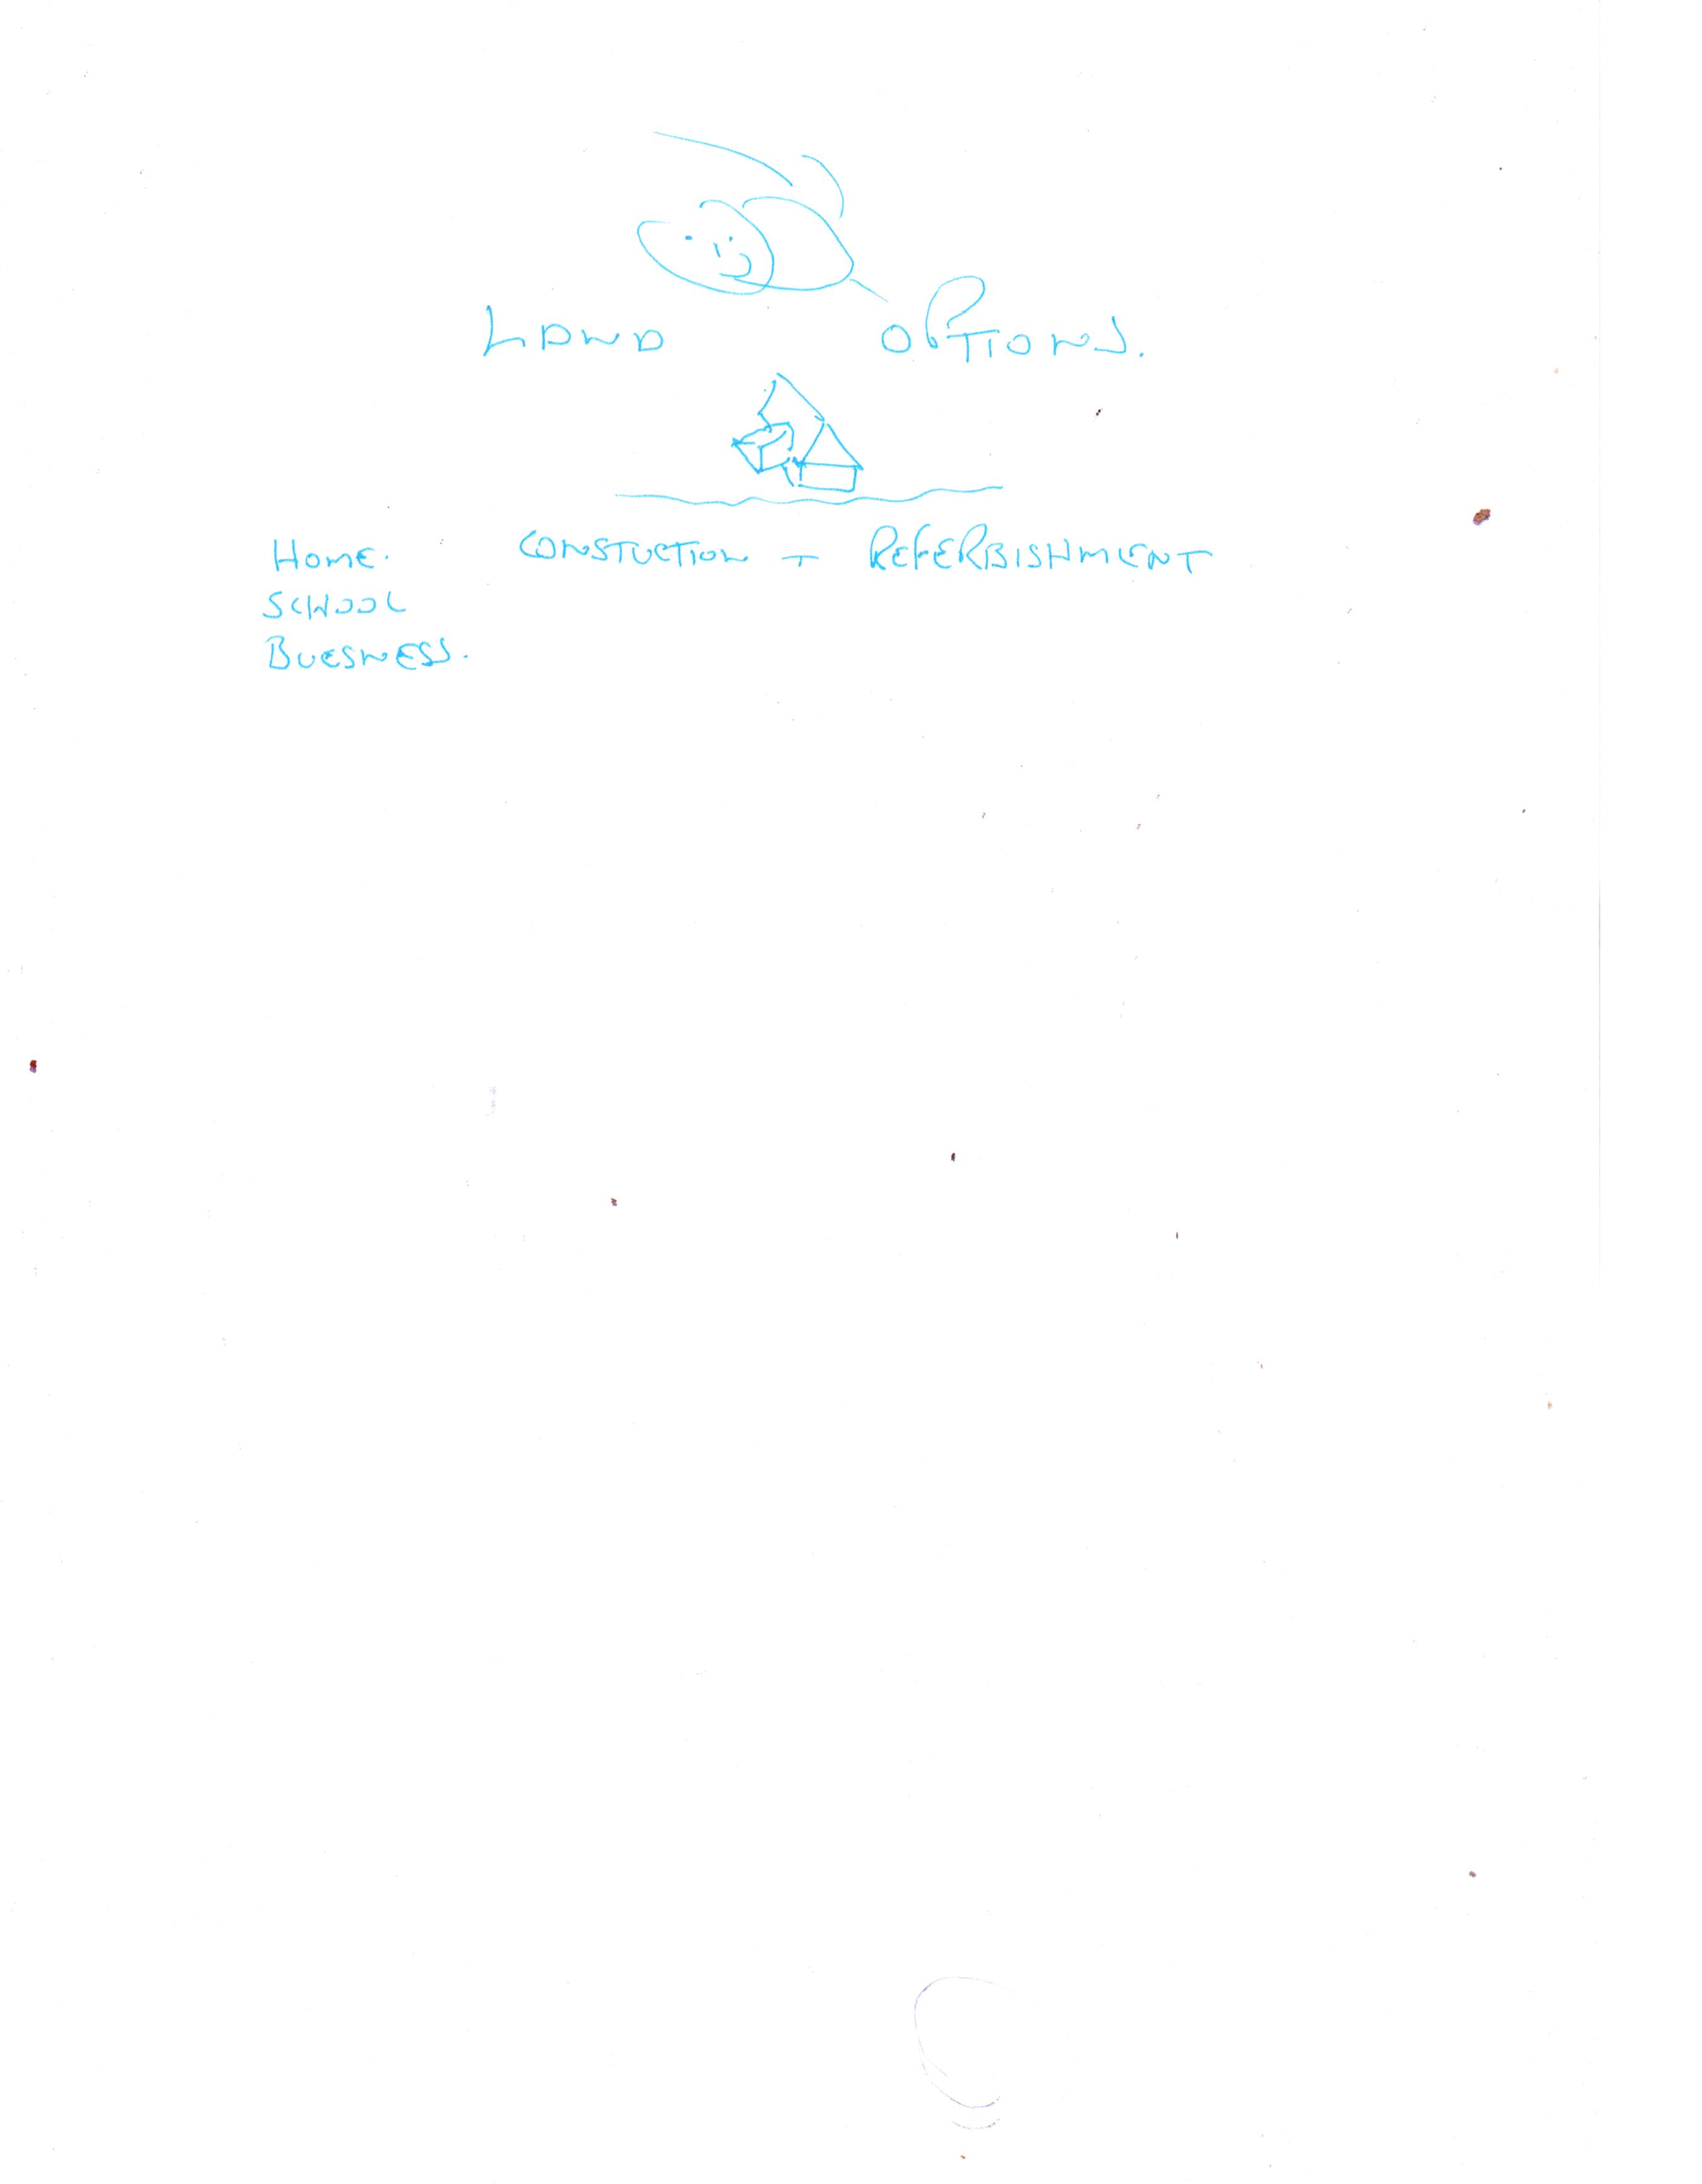 LAND OPTIONS.
HOME. CONSTUCTION + REFERBISHMENT
SCHOOL
BUESNESS.